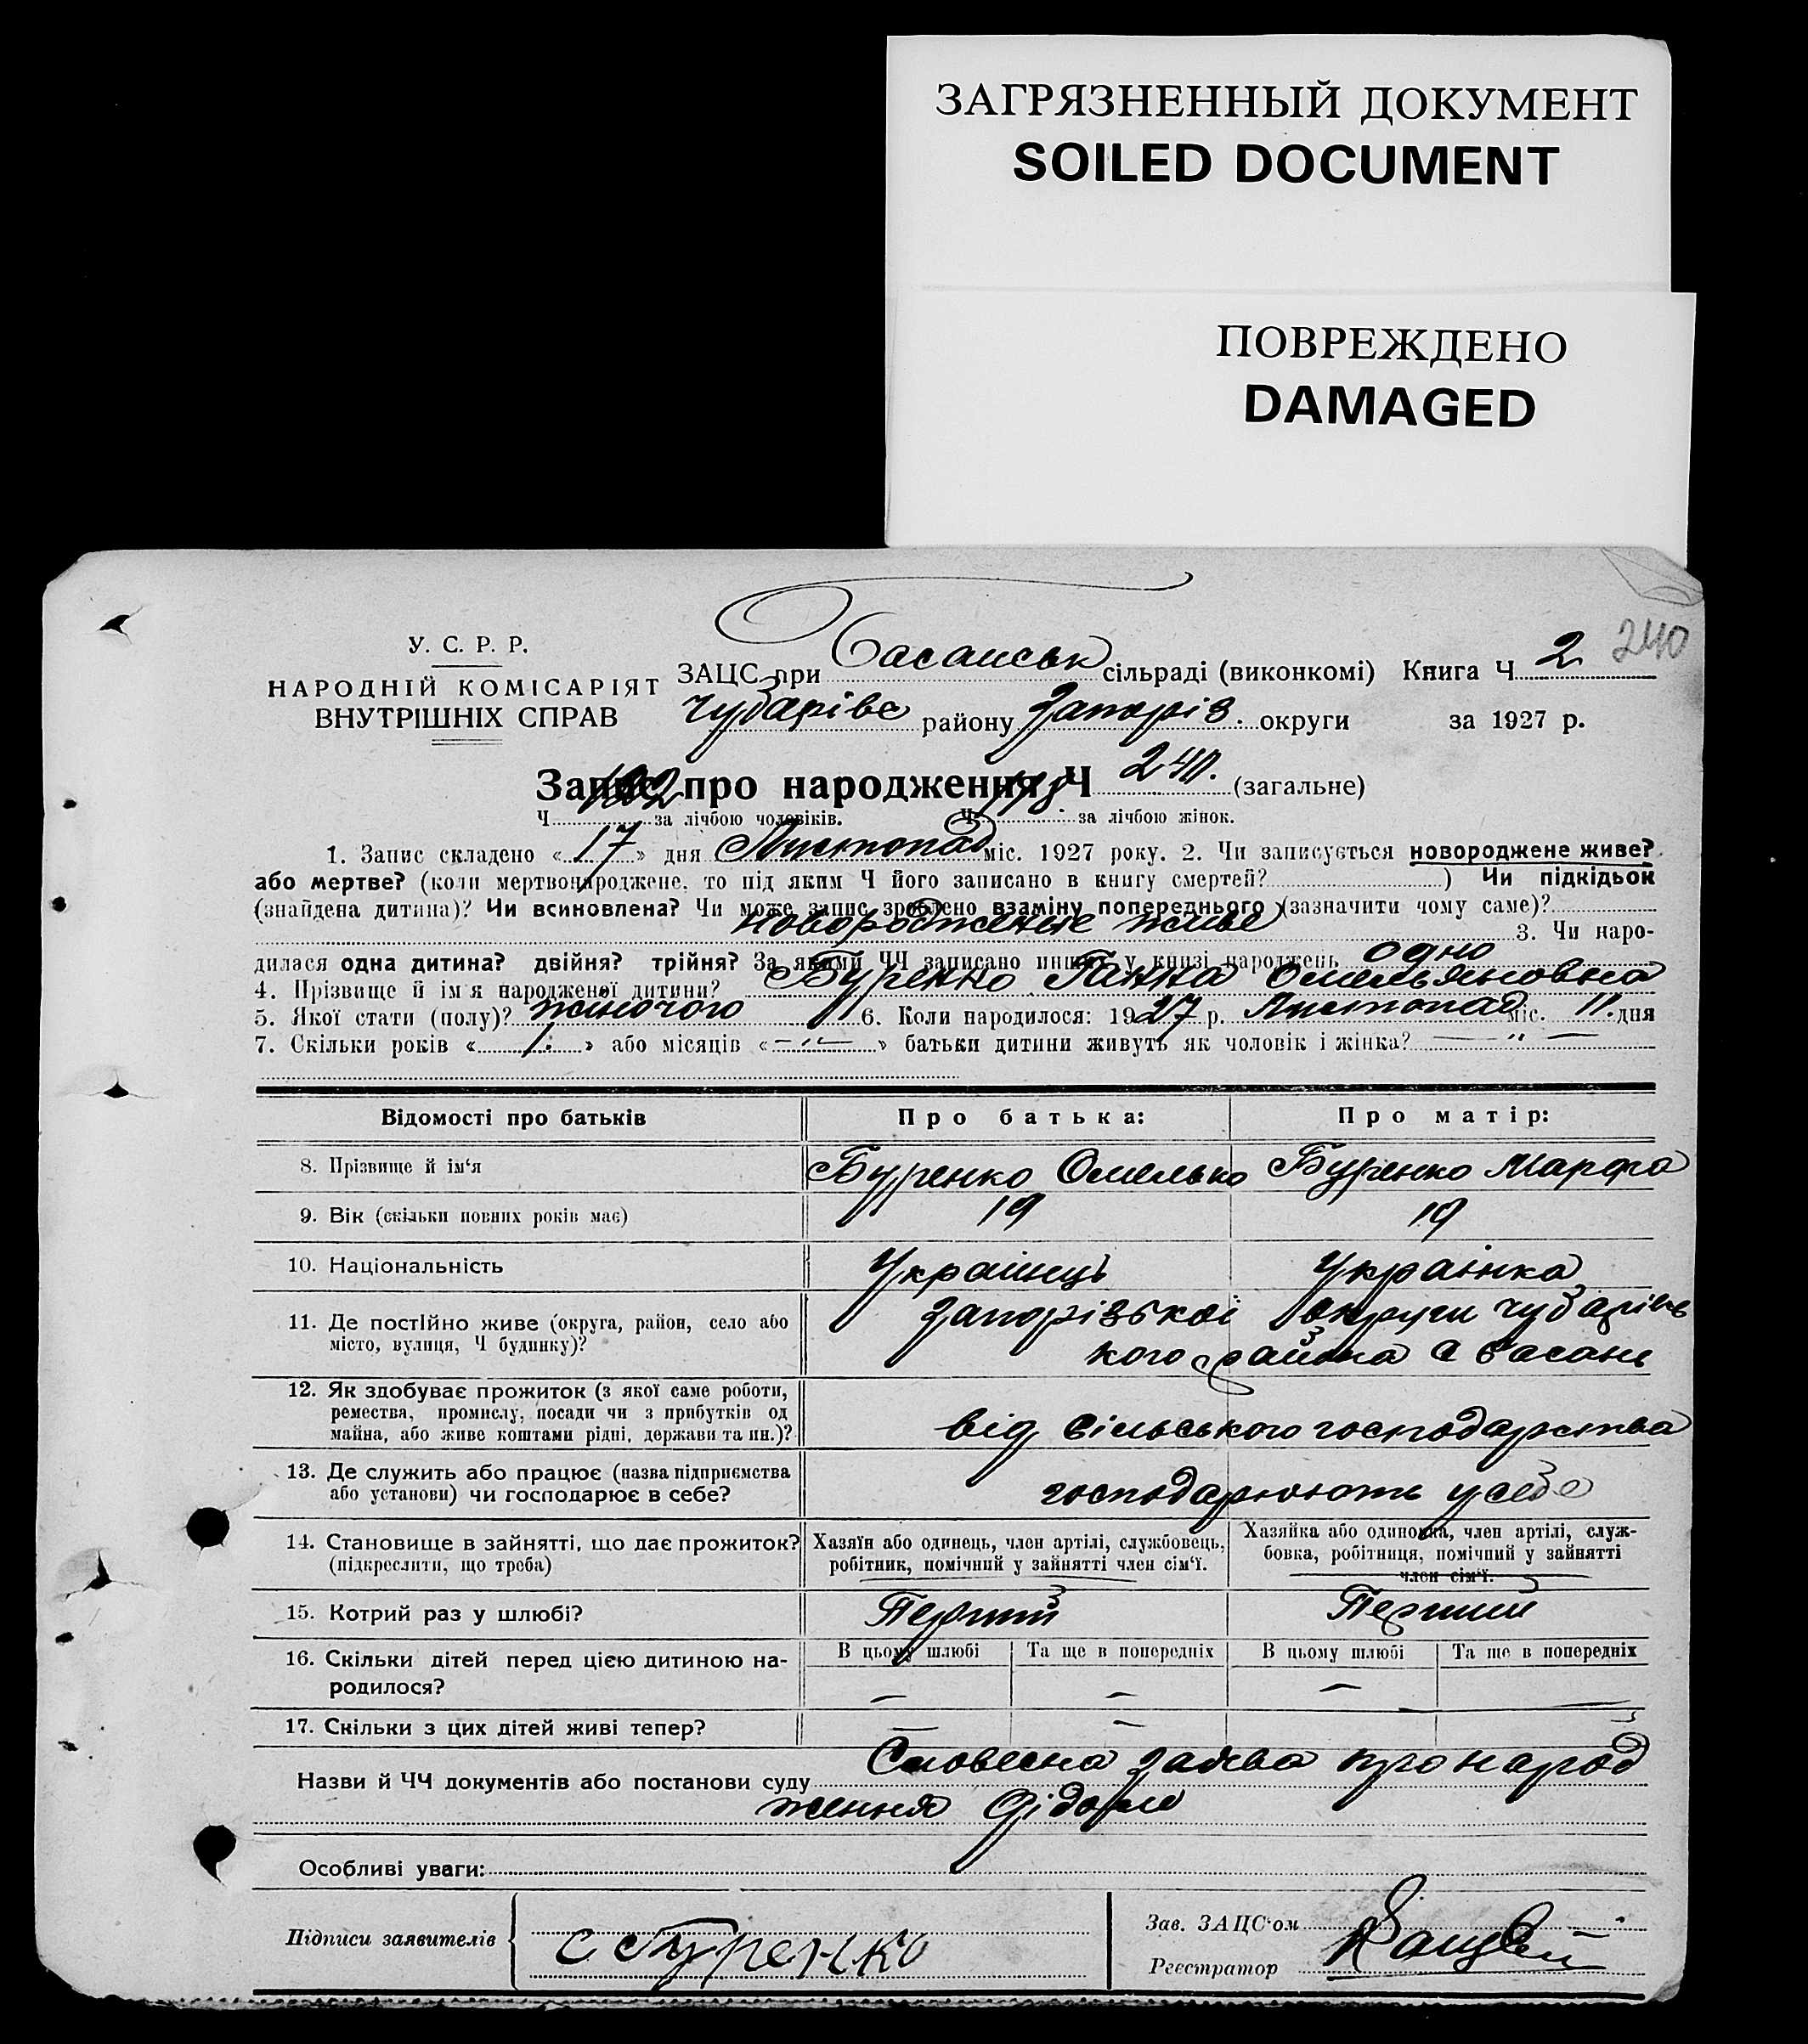 ЗАГРЯЗНЕННЫЙ ДОКУМЕНТ
SOILED DOCUMENT
ПОВРЕЖДЕНО
DAMAGED
240
У. С. Р. Р.
НАРОДНІЙ КОМІСАРІЯТ
ВНУТРІШНІХ СПРАВ
ЗАЦС при Басанськ сільраді (виконкомі) Книга Ч 2
Чубарівс району Запоріз. округи за 1927 р.
Запис про народження Ч 240. (загальне)
Ч за лічбою чоловіків. Ч 118 за лічбою жінок.
1. Запис складено « 17 » дня Листопад міс. 1927 року. 2. Чи записується новороджене живе?
або мертве? (коли мертвонароджене, то під яким Ч його записано в книгу смертей? ) Чи підкідьок
(знайдена дитина)? Чи всиновлена? Чи може запис зроблено взаміну попереднього (зазначити чому саме)?
новородженые живе 3. Чи наро-
дилася одна дитина? двійня? трійня? За якими ЧЧ записано инших у книзі народжень одно
4. Прізвище й ім'я народженої дитини? Буренко Ганна Омельяновна
5. Якої стати (полу)? жиночого 6. Коли народилося: 1927 р. Листопад міс. 11. дня
7. Скільки років « 1. » або місяців « —"— » батьки дитини живуть як чоловік і жінка? — " —
Відомості про батьків Про батька: Про матір:
8. Прізвище й ім'я Буренко Омелько Буренко Марфа
9. Вік (скільки повних років має) 19 19
10. Національність Украинець Украінка
11. Де постійно живе (округа, район, село або
місто, вулиця, Ч будинку)?
Запорізької округи Чубарівс
кого району с Басань
12. Як здобуває прожиток (з якої саме роботи,
ремества, промислу, посади чи з прибутків од
майна, або живе коштами рідні, держави та ин.)?
від сільського господарства
13. Де служить або працює (назва підприємства
або установи) чи господарює в себе?
господарюють у себе
14. Становище в зайнятті, що дає прожиток?
(підкреслити, що треба)
Хазяїн або одинець, член артілі, службовець,
робітник, помічний у зайнятті член сім'ї.
Хазяйка або одиночка, член артілі, служ-
бовка, робітниця, помічний у зайнятті
член сім'ї.
15. Котрий раз у шлюбі? Перший Перший
16. Скільки дітей перед цією дитиною на-
родилося?
В цьому шлюбі Та ще в попередніх В цьому шлюбі Та ще в попередніх
— — — —
17. Скільки з цих дітей живі тепер? — —
Назви й ЧЧ документів або постанови суду Словесна заява про народ
ження дідом
Особливі уваги:
Підписи заявителів с Буренко
Зав. ЗАЦС'ом
Реєстратор